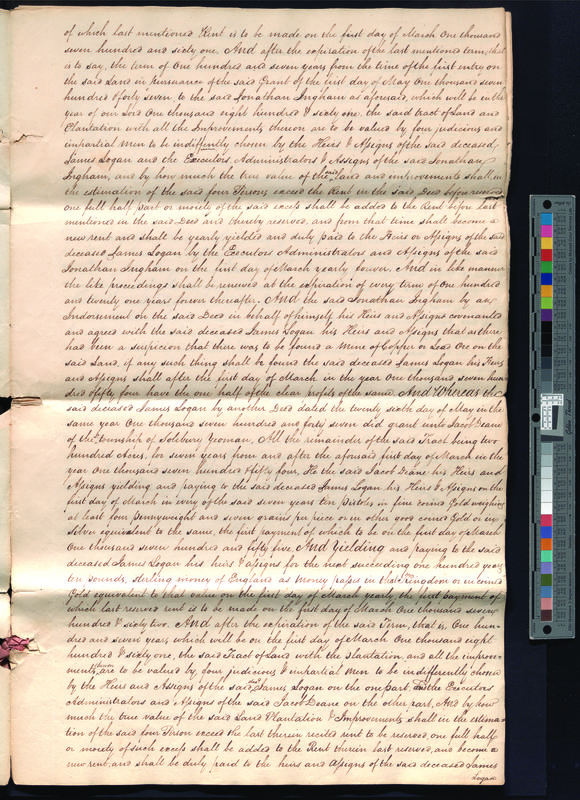 of which last mentioned Rent is to be made on the first day of March One thousand
seven hundred and sixty one. And after the expiration of the last mentioned term, that
is to say, the term of One hundred and seven years from the time of the first entry on
the said Land in pursuance of the said Grant of the first day of May One thousand seven
hundred & forty seven to the said Jonathan Ingham as aforesaid, which will be in the
year of our Lord One thousand eight hundred & sixty one, the said tract of Land and
Plantation with all the Improvements thereon are to be valued by four judicious and
impartial men to be indifferently chosen by the Heirs & Assigns of the said deceased
James Logan and the Executors Administrators & Assigns of the said Jonathan
Ingham, and by how much the true value of the said Land and improvements shall in
the estimation of the said four Persons exceed the Rent in the said Deed before reserved
one full half part or moiety of the said excess shall be added to the Rent before last
mentioned in the said Deed and thereby reserved, and from that time shall become a
new rent and shall be yearly yielded and duly paid to the Heirs or Assigns of the said
deceased James Logan by the Executors Administrators and Assigns of the said
Jonathan Ingham on the first day of March yearly forever. And in like manner
the like proceedings shall be renewed at the expiration of every term of One hundred
and twenty one years forever thereafter. And the said Jonathan Ingham by an
Indorsement on the said Deed in behalf of himself his Heirs and Assigns covenanted
and agreed with the said deceased James Logan his Heirs and Assigns that as there
had been a suspicion that there was to be found a Mine of Copper or Lead Ore on the
said Land, if any such thing shall be found the said deceased James Logan his Heirs
and Assigns shall after the first day of March in the year One thousand, seven hun
dred & fifty four have the one half of the clear profits of the same. And Whereas the
said deceased James Logan by another Deed dated the twenty sixth day of May in the
same year One thousand seven hundred and forty seven did grant unto Jacob Deane
of the township of Solebury Yeoman, All the remainder of the said Tract being two
hundred Acres, for seven years from and after the aforesaid first day of March in the
year One thousand seven hundred & fifty four, He the said Jacob Deane his Heirs and
Assigns yielding and paying to the said deceased James Logan his Heirs & Assigns on the
first day of March in every of the said seven years ten Pistoles in fine coined Gold weighing
at least four pennyweight and seven grains per piece or in other good coined Gold or in
Silver equivalent to the same, the first payment of which to be on the first day of March
One thousand seven hundred and fifty five, And Yielding and paying to the said
deceased James Logan his heirs & assigns for the next succeeding one hundred years
ten pounds, sterling money of England as money passes in that Kingdom or in coined
Gold equivalent to that value on the first day of March yearly, the first payment of
which last reserved rent is to be made on the first day of March One thousand seven
hundred & sixty two. And after the expiration of the said Term, that is, One hun-
dred and seven years which will be on the first day of March One thousand eight
hundred & sixty one, the said Tract of Land with the plantation, and all the improve-
ments thereon are to be valued by four judicious & impartial men to be indifferently chosen
by the Heirs and Assigns of the said James Logan on the one part, the Executors
Administrators and Assigns of the said Jacob Deane on the other part, And by how
much the true value of the said Land Plantation & Improvements shall in the estima-
tion of the said four Persons exceed the last therein recited rent to be reserved, one full half
or moiety of such excess shall be added to the Rent therein last reserved, and become a
new rent, and shall be duly paid to the heirs and Assigns of the said deceased James
Logan